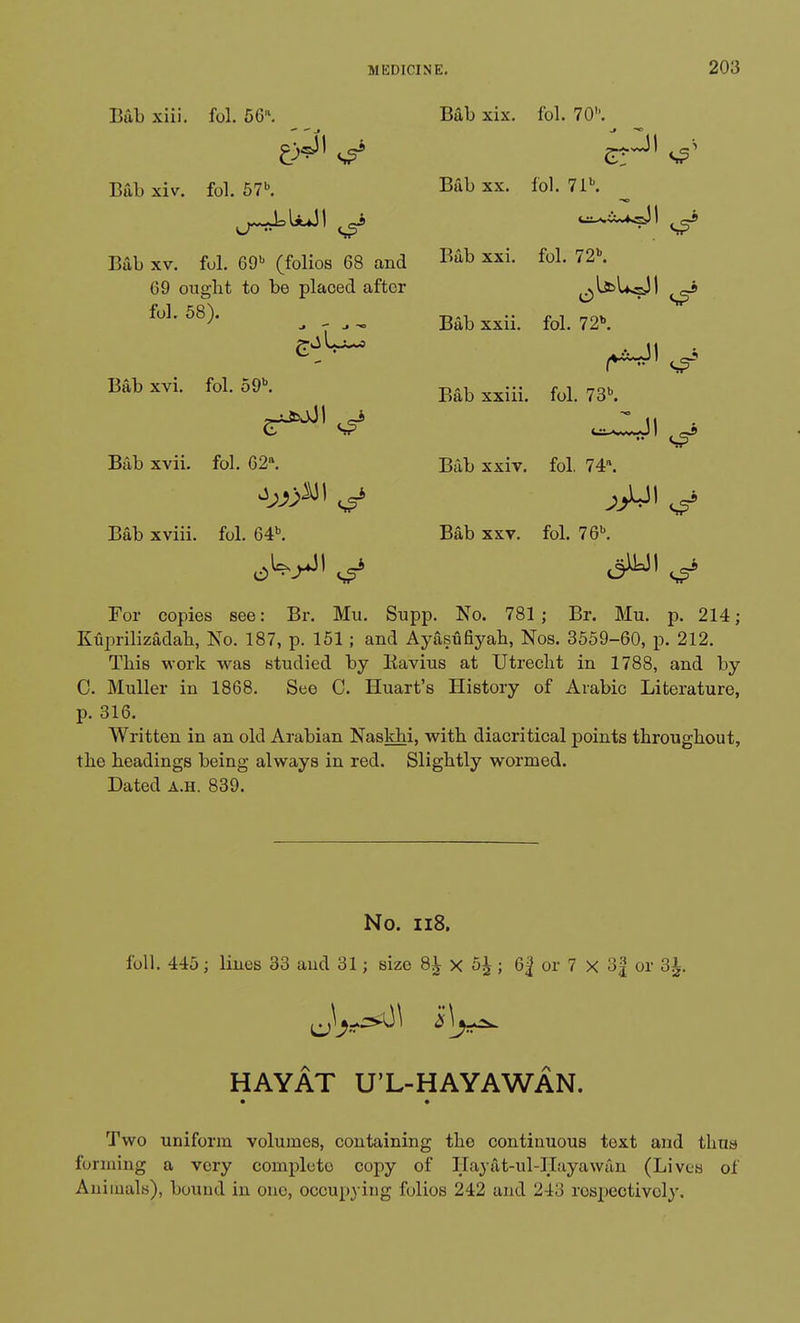 MEDICINE. 203
Bâb xiii. fol. 56ª.
في الجزع
Bâb xiv. fol. 57ᵇ.
في المغناطيس
Bâb xv. fol. 69ᵇ (folios 68 and
69 ought to be placed after
fol. 58).
Bâb xvi. fol. 59ᵇ.
في الدهنج
Bâb xvii. fol. 62ª.
في اللازورد
Bâb xviii. fol. 64ᵇ.
في المرجان
Bâb xix. fol. 70ᵇ.
في السبج
Bâb xx. fol. 71ᵇ.
في الجمشت
Bâb xxi. fol. 72ᵇ.
في الخماهان
Bâb xxii. fol. 72ᵇ.
في اليشم
Bâb xxiii. fol. 73ᵇ.
في اليشب
Bâb xxiv. fol. 74ª.
في البلور
Bâb xxv. fol. 76ᵇ.
في الطلق
For copies see: Br. Mu. Supp. No. 781; Br. Mu. p. 214;
Kûprilizâdah, No. 187, p. 151; and Ayâsûfiyah, Nos. 3559-60, p. 212.
This work was studied by Ravius at Utrecht in 1788, and by
C. Muller in 1868. See C. Huart's History of Arabic Literature,
p. 316.
Written in an old Arabian Naskhi, with diacritical points throughout,
the headings being always in red. Slightly wormed.
Dated A.H. 839.
No. 118.
foll. 445; lines 33 and 31; size 8½ x 5½; 6¾ or 7 x 3¾ or 3½.
حيوة الحيوان
ḤAYÂT U'L-ḤAYAWÂN.
Two uniform volumes, containing the continuous text and thus
forming a very complete copy of Ḥayât-ul-Ḥayawân (Lives of
Animals), bound in one, occupying folios 242 and 243 respectively.